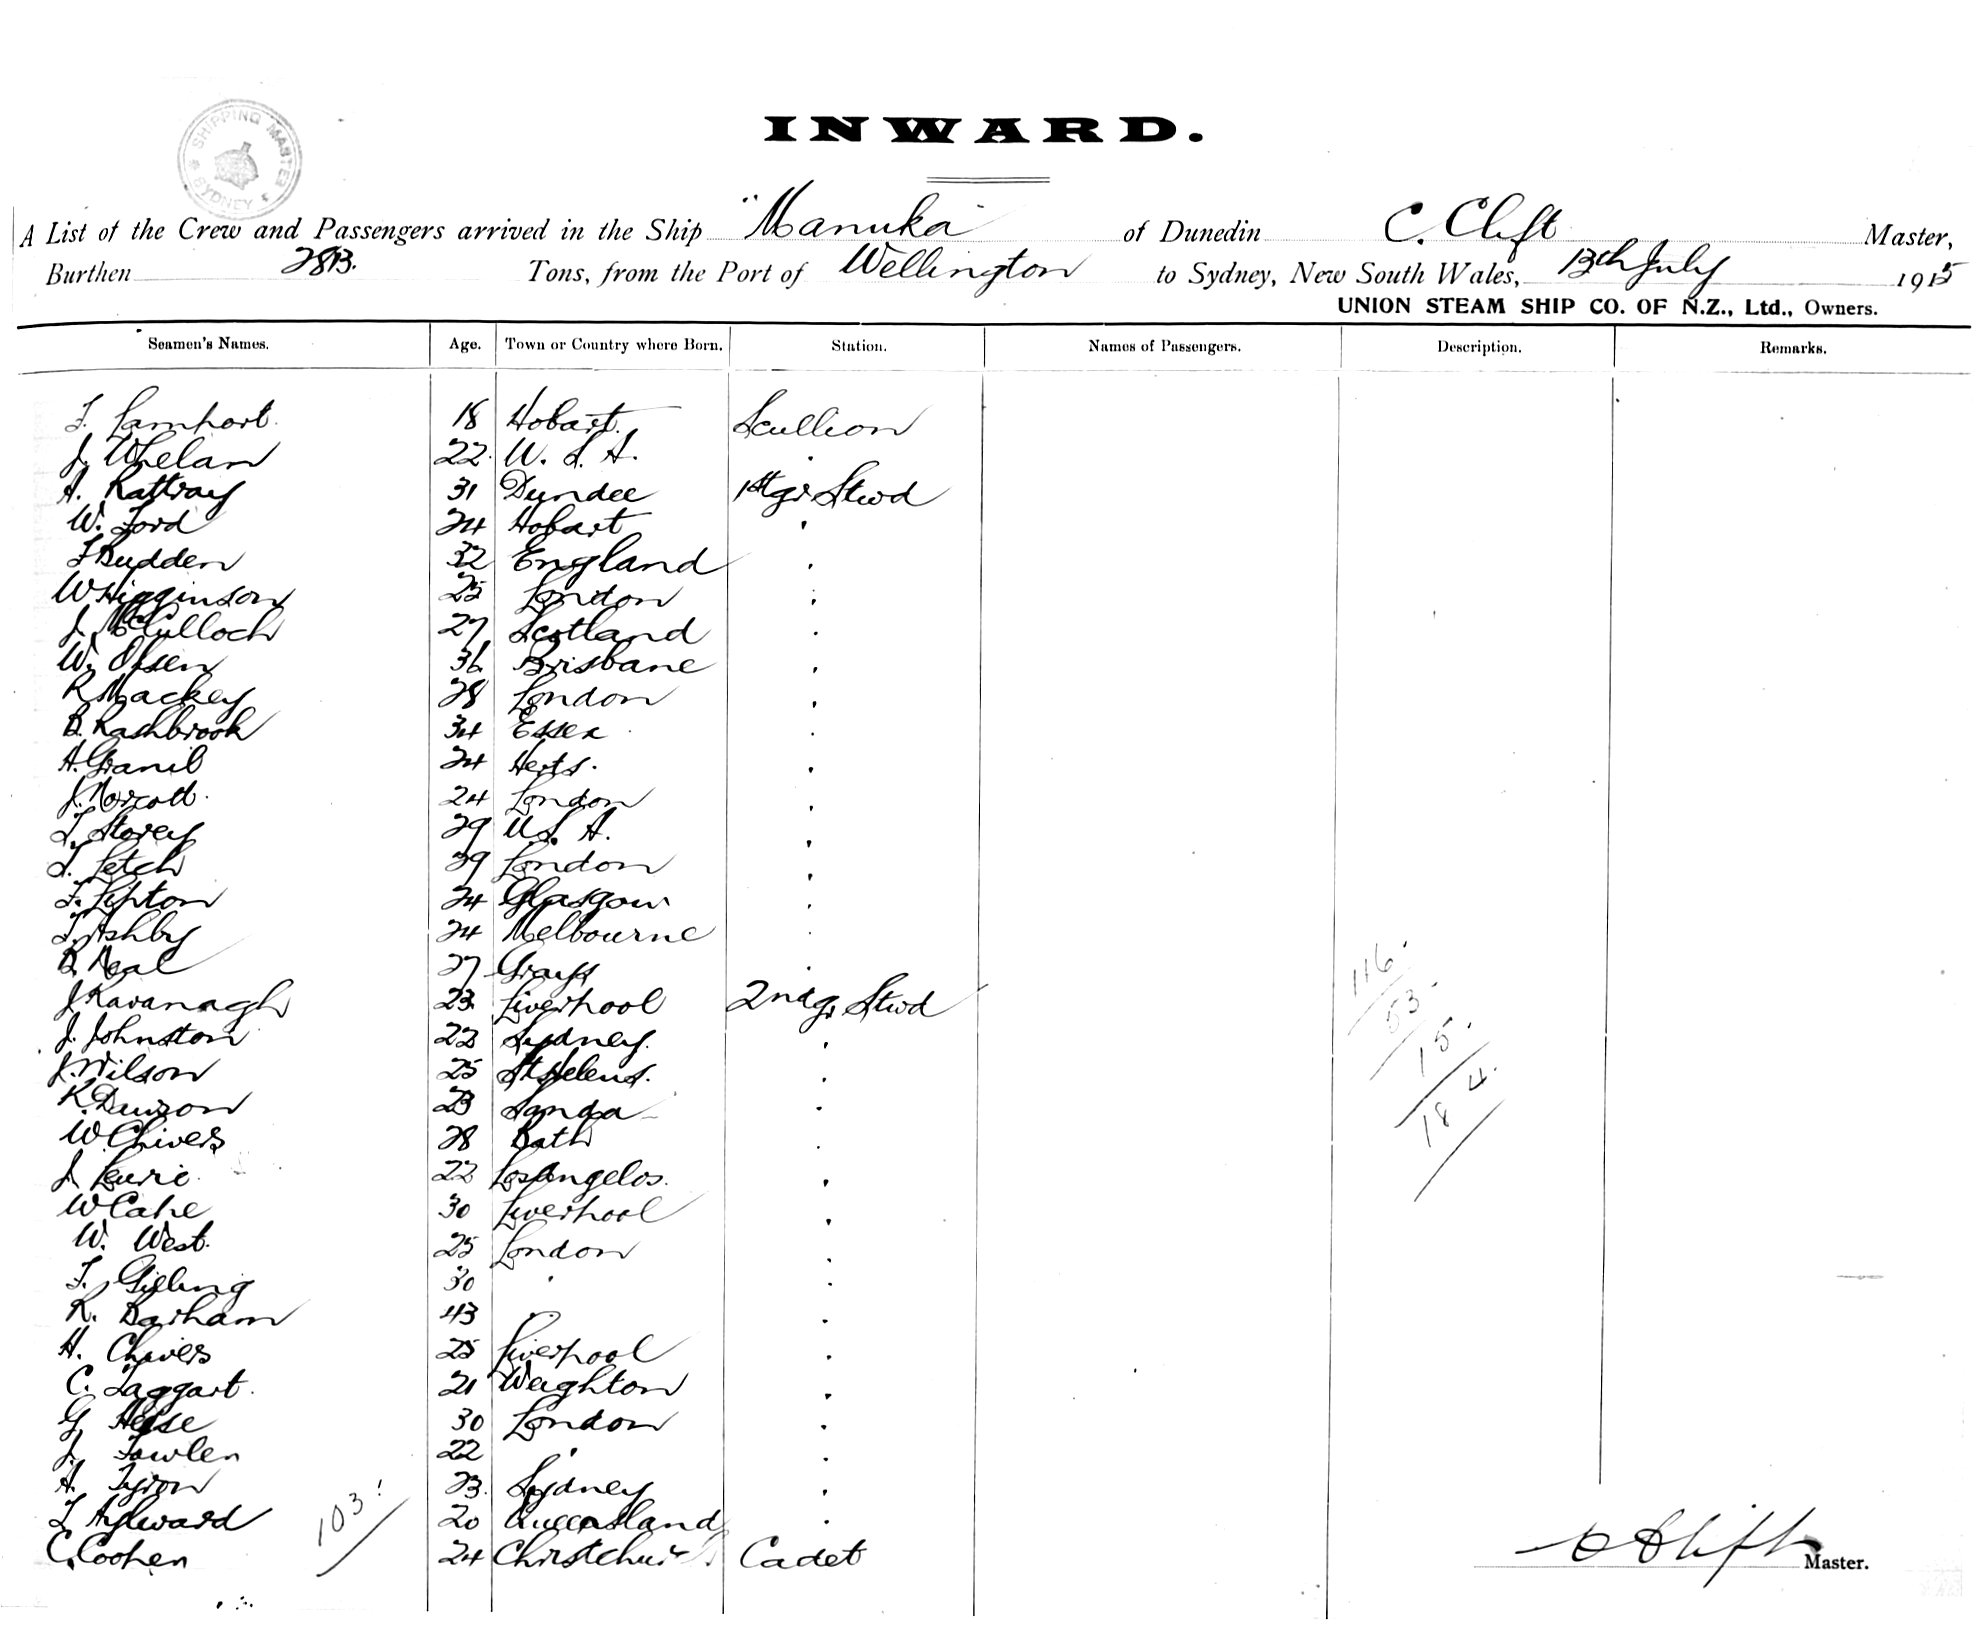 SHIPPING MASTER SYDNEY
INWARD.
A List of the Crew and Passengers arrived in the Ship "Manuka" of Dunedin C. Clift Master,
Burthen 2813. Tons, from the Port of Wellington to Sydney, New South Wales, 13th July 1915
UNION STEAM SHIP CO. OF N.Z., Ltd., Owners.
Seamen's Names. Age. Town or Country where Born. Station. Names of Passengers. Description. Remarks.
F. Lamport. 18 Hobart. Scullion
J. Whelan 22. U. S. A. "
A. Rattray 31 Dundee 1st gr Stwd
W. Ford 24 Hobart "
F Budden 32 England "
W Higginson 25 London "
J. McCulloch 27 Scotland "
W. Olsen 36 Brisbane "
R Mackey 28 London "
B. Rashbrook 34 Essex "
A. 24 Herts. "
J. Norcott. 24 London "
T. Storey 29 U. S. A. "
T. Letch 39 London "
F. Lipton 24 Glasgow "
T. Ashby 24 Melbourne "
B. Neal 27 Grays "
J Kavanagh 23. Liverpool 2nd gr Stwd
J. Johnston 22 Sydney. "
J. Wilson 25 St Helens. "
R. Dawson 23 "
W. Chivers 28 Bath "
J. Lewrie. 22 Los Angelos. "
W Cahe 30 Liverpool "
W. West. 25 London "
F. 30 " "
R. Barham 43 " "
H. Chivers 25 Liverpool "
C. Taggart. 21 Weighton "
G 30 London "
J. Fowler 22 " "
A. Tyron 23. Sydney "
T Aylward 20 Queensland "
C. Coohen 24 Christchurch. Cadet
103.
116.
53.
15.
184.
C Clift Master.